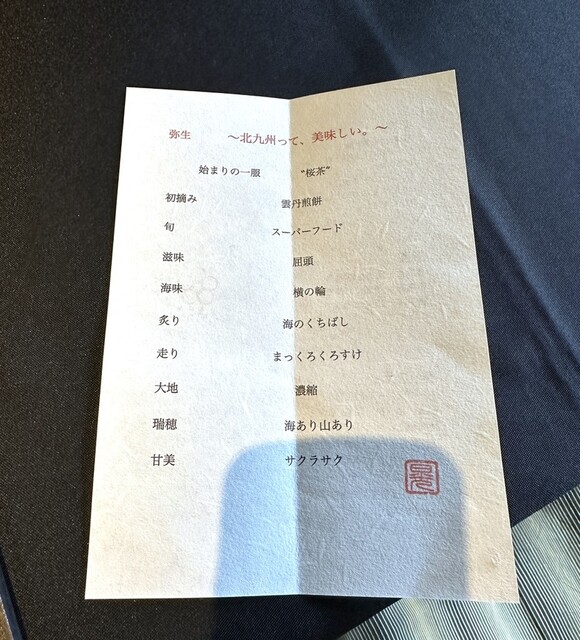 弥生 ～北九州って、美味しい。～
始まりの一服 “桜茶”
初摘み 雲丹煎餅
旬 スーパーフード
滋味 屈頭
海味 横の輪
炙り 海のくちばし
走り まっくろくろすけ
大地 濃縮
瑞穂 海あり山あり
甘美 サクラサク